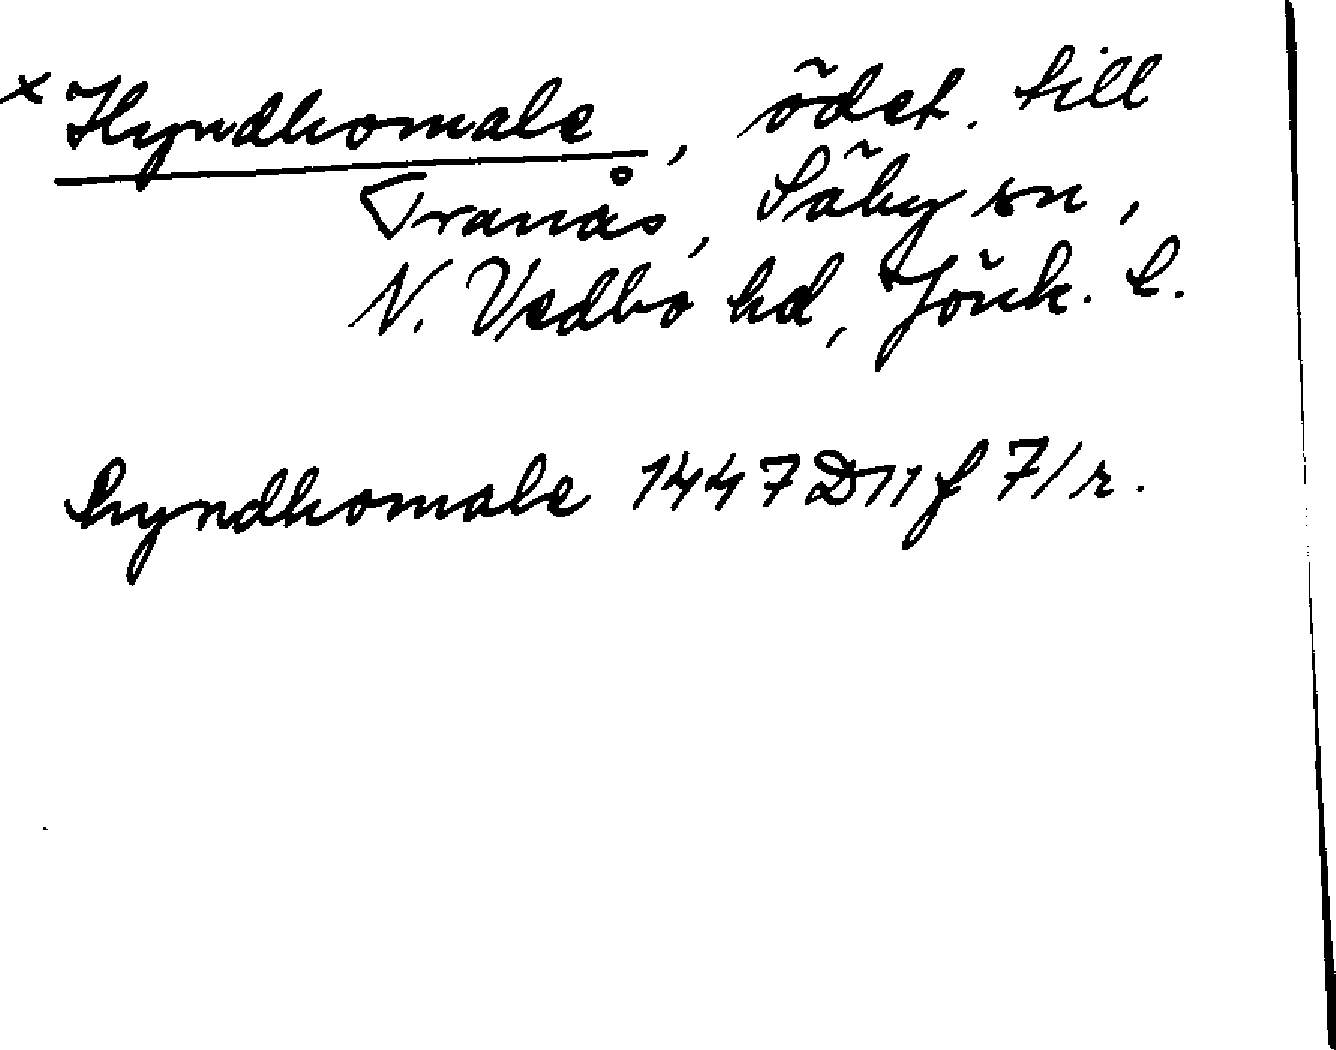 x Hyndhomale, ödet. till
Tranås, Säby sn,
N. Vedbo hd, Jönk. l.
hyndhomale 1447 D11 f 7/r.